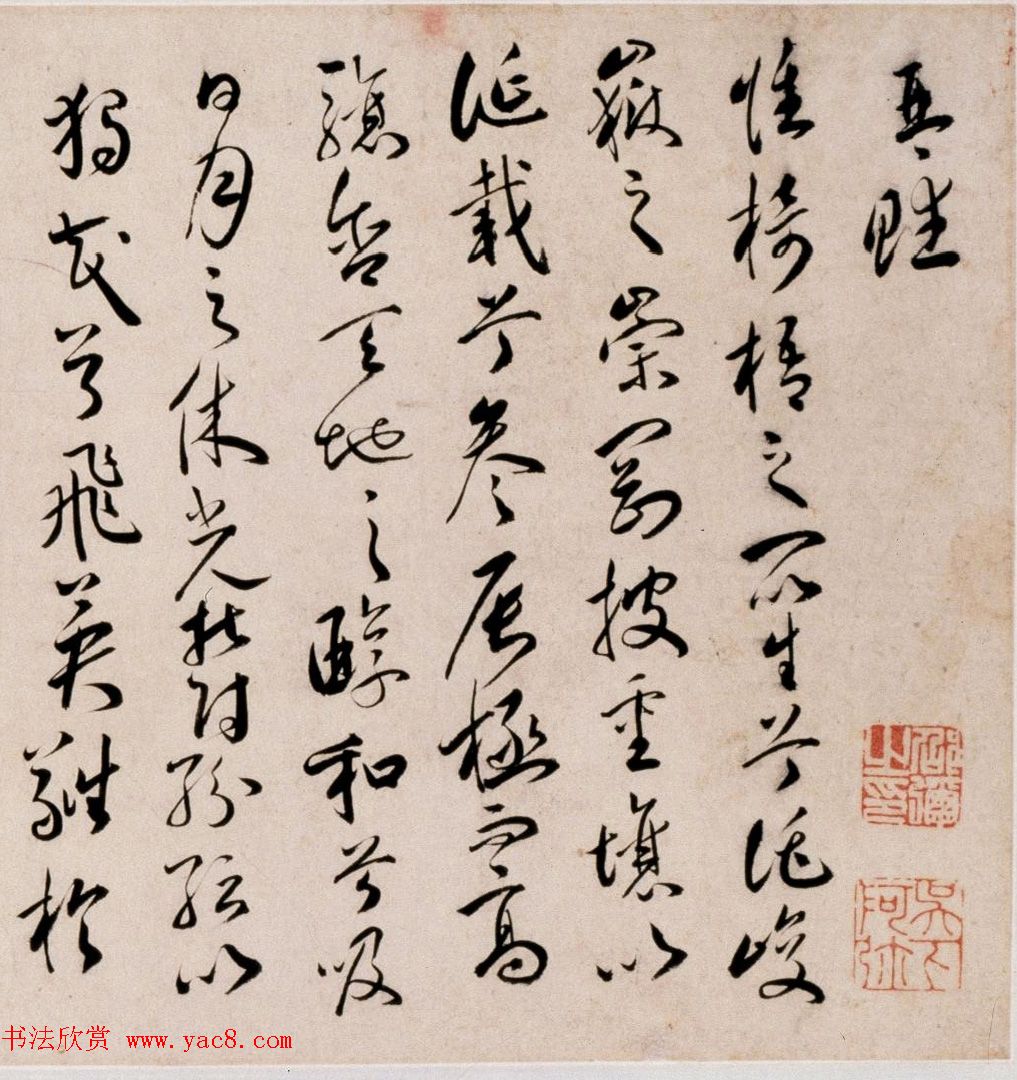 琴賦
惟椅梧之所生兮託峻
嶽之崇岡披重壤以
誕載兮參辰極而高
驤含天地之醇和兮吸
日月之休光鬱紛紜以
獨茂兮飛英蕤於
吳門
阿弥
书法欣赏 www.yac8.com